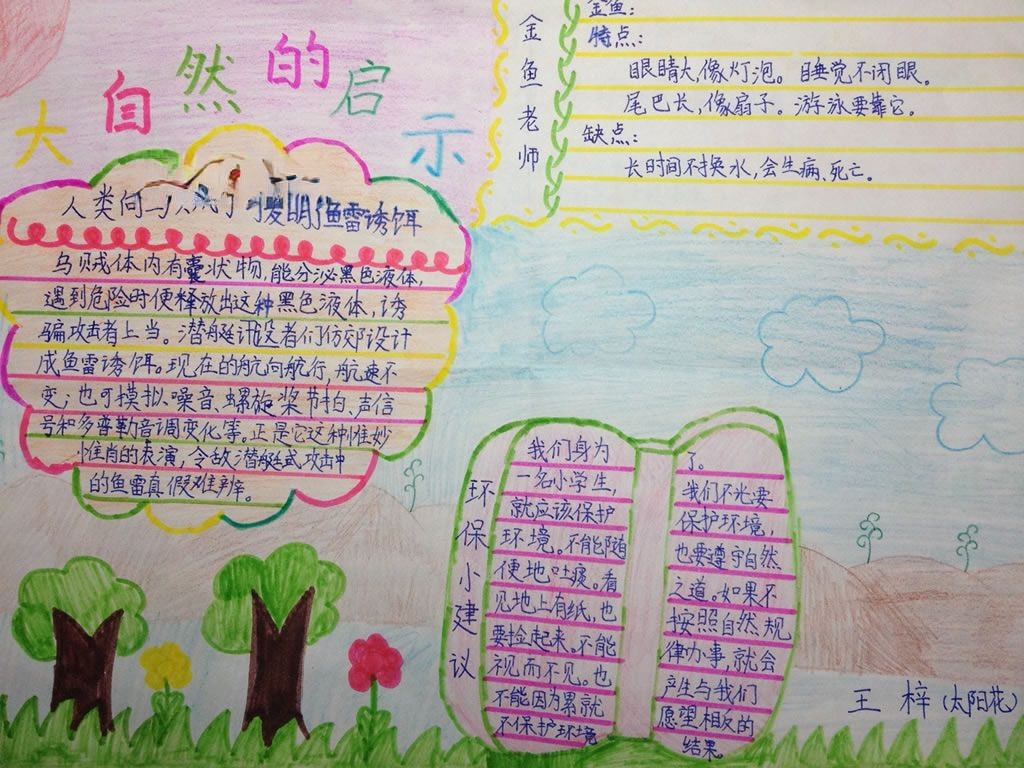 大自然的启示
人类向乌贼 发明鱼雷诱饵
乌贼体内有囊状物,能分泌黑色液体,
遇到危险时便释放出这种黑色液体,诱
骗攻击者上当。潜艇设者们仿 设计
成鱼雷诱饵。现在的航向航行,航速不
变;也可摸拟噪音、螺旋桨节拍、声信
号和多普勒音调变化等。正是它这种惟妙
惟肖的表演,令敌潜艇或攻击中
的鱼雷真假难辨。
金鱼老师
金鱼:
特点:
眼睛大,像灯泡。睡觉不闭眼。
尾巴长,像扇子。游泳要靠它。
缺点:
长时间不换水,会生病、死亡。
环保小建议
我们身为
一名小学生,
就应该保护
环境。不能随
便地吐痰。看
见地上有纸,也
要捡起来。不能
视而不见。也
不能因为累就
不保护环境
了。
我们不光要
保护环境,
也要遵守自然
之道。如果不
按照自然规
律办事,就会
产生与我们
愿望相反的
结果
王梓(太阳花)